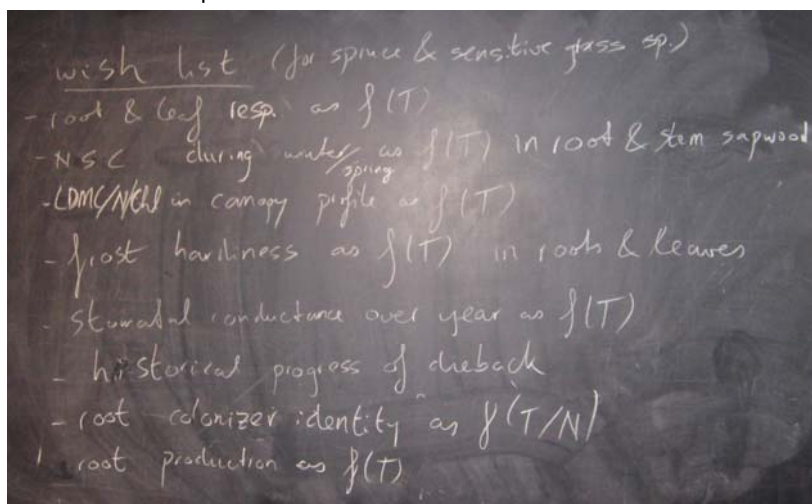 wish list (for spruce & sensitive grass sp.)
- root & leaf resp. as f(T)
- NSC during winter/spring as f(T) in root & stem sapwood
- LDMC/N/Chl in canopy profile as f(T)
- frost hardiness as f(T) in roots & leaves
- stomatal conductance over year as f(T)
- historical progress of dieback
- root colonizer identity as f(T/N)
- root production as f(T)